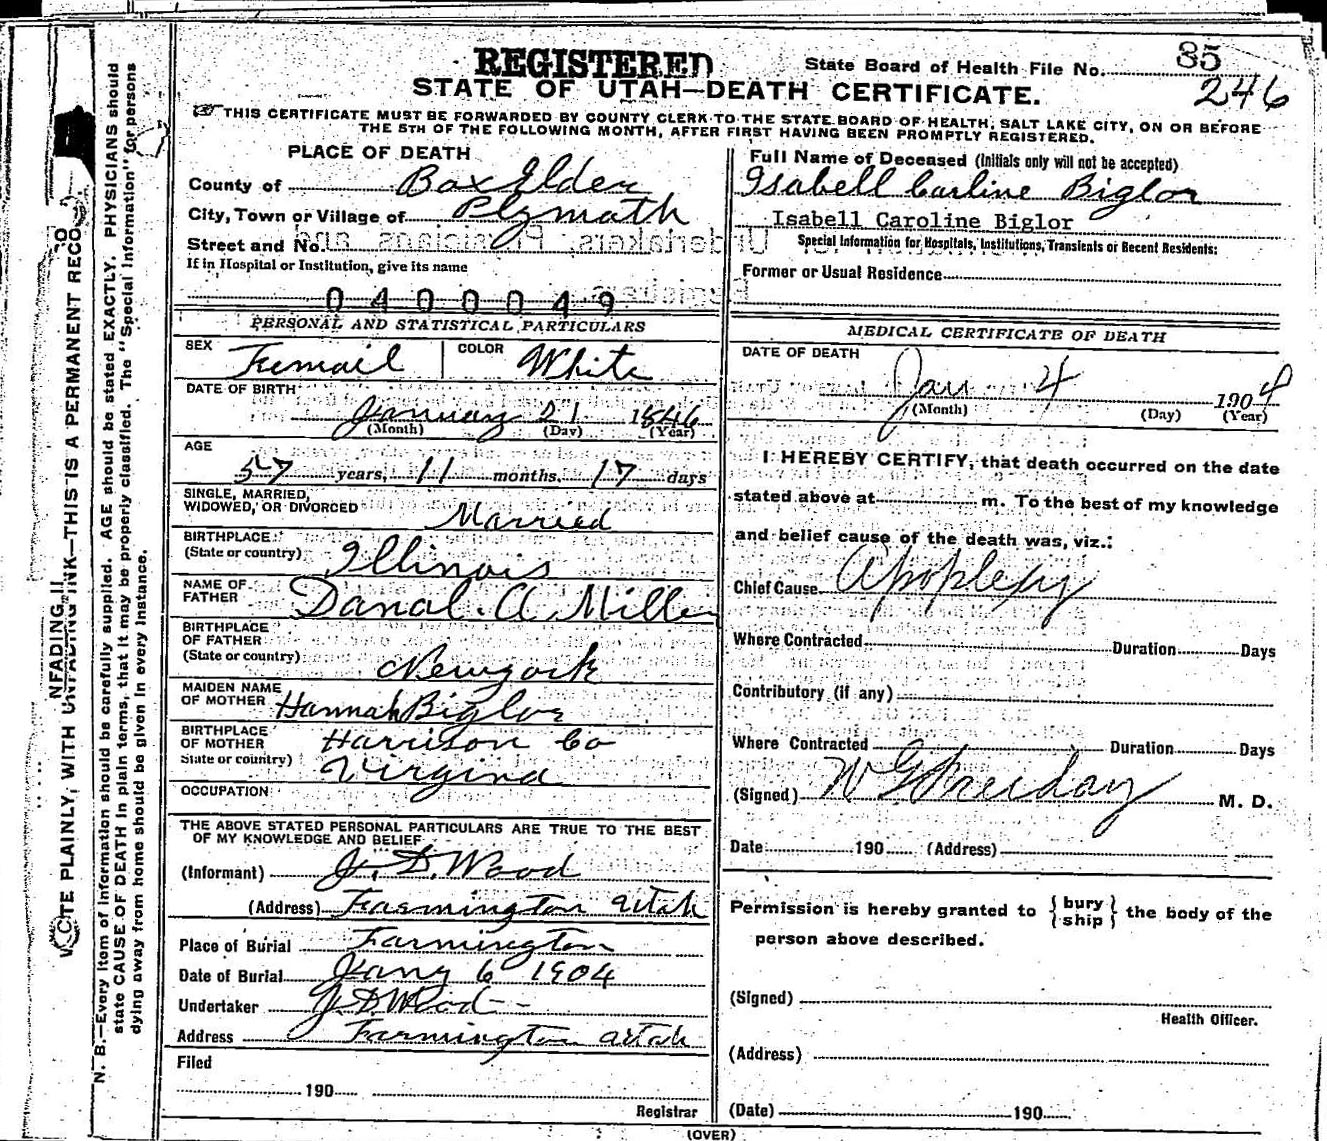 REGISTERED
State Board of Health File No. 85
246
STATE OF UTAH—DEATH CERTIFICATE.
THIS CERTIFICATE MUST BE FORWARDED BY COUNTY CLERK TO THE STATE BOARD OF HEALTH, SALT LAKE CITY, ON OR BEFORE
THE 5TH OF THE FOLLOWING MONTH, AFTER FIRST HAVING BEEN PROMPTLY REGISTERED.
PLACE OF DEATH
County of Box Elder
City, Town or Village of Plymath
Street and No.
If in Hospital or Institution, give its name
0400049
Full Name of Deceased (Initials only will not be accepted)
Isabell Carline Biglor
Isabell Caroline Biglor
Special Information for Hospitals, Institutions, Transients or Recent Residents:
Former or Usual Residence
PERSONAL AND STATISTICAL PARTICULARS
SEX Femail
COLOR White
DATE OF BIRTH
January 21 1846
(Month) (Day) (Year)
AGE
57 years, 11 months, 17 days
SINGLE, MARRIED,
WIDOWED, OR DIVORCED Married
BIRTHPLACE
(State or country) Illinois
NAME OF
FATHER Danal. A Miller
BIRTHPLACE
OF FATHER
(State or country) Newyork
MAIDEN NAME
OF MOTHER Hannah Biglor
BIRTHPLACE
OF MOTHER Harrison Co
State or country) Virgina
OCCUPATION
THE ABOVE STATED PERSONAL PARTICULARS ARE TRUE TO THE BEST
OF MY KNOWLEDGE AND BELIEF
(Informant) J. D. Wood
(Address) Farmington Utah
Place of Burial Farmington
Date of Burial Jany 6 1904
Undertaker J. D Wood
Address Farmington Utah
Filed
190
Registrar
MEDICAL CERTIFICATE OF DEATH
DATE OF DEATH
Jan 4 1904
(Month) (Day) (Year)
I HEREBY CERTIFY, that death occurred on the date
stated above at m. To the best of my knowledge
and belief cause of the death was, viz.:
Chief Cause Apoplexy
Where Contracted Duration Days
Contributory (if any)
Where Contracted Duration Days
(Signed) W G M. D.
Date 190 (Address)
Permission is hereby granted to { bury
ship } the body of the
person above described.
(Signed)
Health Officer.
(Address)
(Date) 190
(OVER)
NFADING II
TE PLAINLY, WITH UNFADING INK—THIS IS A PERMANENT RECO
N. B.—Every item of information should be carefully supplied. AGE should be stated EXACTLY. PHYSICIANS should
state CAUSE OF DEATH in plain terms, that it may be properly classified. The "Special Information" for persons
dying away from home should be given in every instance.